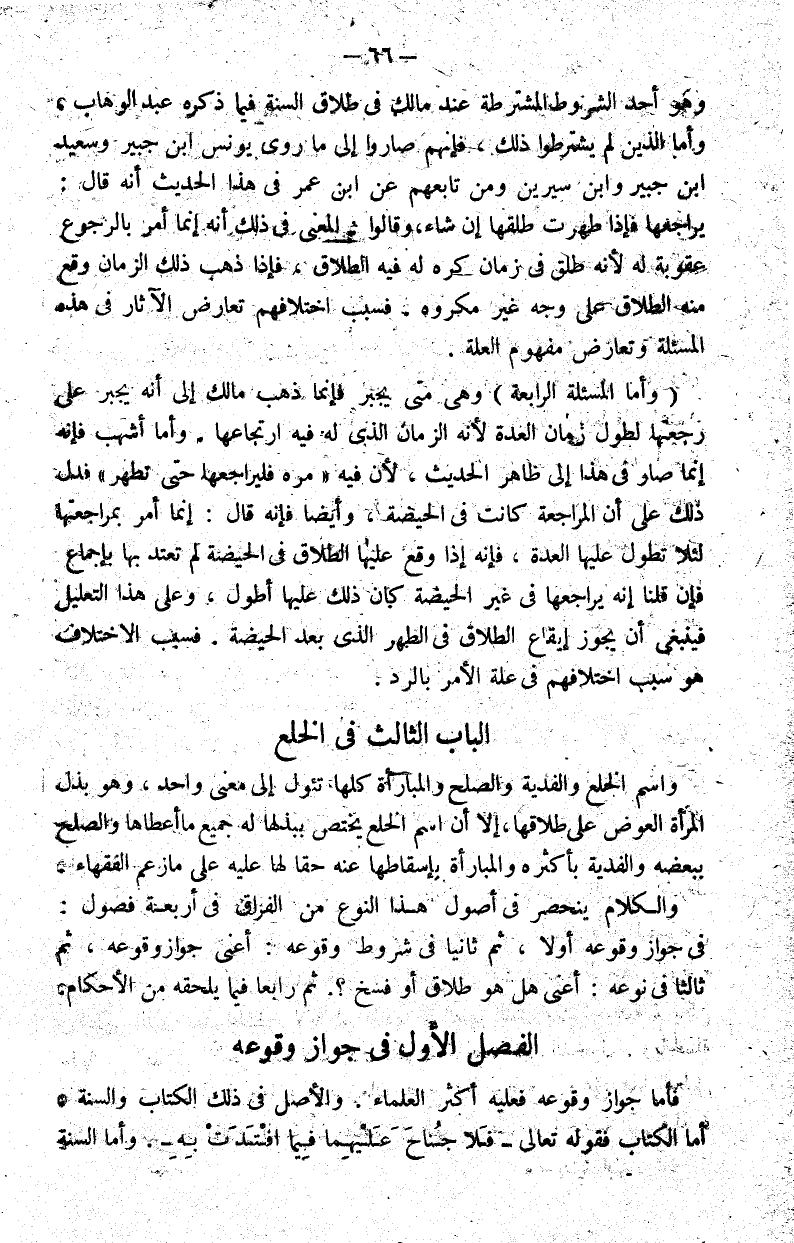 — ٦٦ —
وهو أحد الشروط المشترطة عند مالك فى طلاق السنة فيما ذكره عبد الوهاب ،
وأما الذين لم يشترطوا ذلك ، فإنهم صاروا إلى ما روى يونس ابن جبير وسعيد
ابن جبير وابن سيرين ومن تابعهم عن ابن عمر فى هذا الحديث أنه قال :
يراجعها فإذا طهرت طلقها إن شاء، وقالوا المعنى فى ذلك أنه إنما أمر بالرجوع
عقوبة له لأنه طلق فى زمان كره له فيه الطلاق ، فإذا ذهب ذلك الزمان وقع
منه الطلاق على وجه غير مكروه . فسبب اختلافهم تعارض الآثار فى هذه
المسئلة وتعارض مفهوم العلة .
( وأما المسئلة الرابعة ) وهى متى يجبر فإنما ذهب مالك إلى أنه يجبر على
رجعتها لطول زمان العدة لأنه الزمان الذى له فيه ارتجاعها . وأما أشهب فإنه
إنما صار فى هذا إلى ظاهر الحديث ، لأن فيه « مره فليراجعها حتى تطهر» فدل
ذلك على أن المراجعة كانت فى الحيضة ، وأيضا فإنه قال : إنما أمر بمراجعتها
لئلا تطول عليها العدة ، فإنه إذا وقع عليها الطلاق فى الحيضة لم تعتد بها بإجماع
فإن قلنا إنه يراجعها فى غير الحيضة كان ذلك عليها أطول ، وعلى هذا التعليل
فينبغى أن يجوز إيقاع الطلاق فى الطهر الذى بعد الحيضة . فسبب الاختلاف
هو سبب اختلافهم فى علة الأمر بالرد .
الباب الثالث فى الخلع
واسم الخلع والفدية والصلح والمبارأة كلها تئول إلى معنى واحد ، وهو بذل
المرأة العوض على طلاقها، إلا أن اسم الخلع يختص ببذلها له جميع ما أعطاها والصلح
ببعضه والفدية بأكثره والمبارأة بإسقاطها عنه حقا لها عليه على مازعم الفقهاء .
والكلام ينحصر فى أصول هذا النوع من الفراق فى أربعة فصول :
فى جواز وقوعه أولا ، ثم ثانيا فى شروط وقوعه : أعنى جواز وقوعه ، ثم
ثالثا فى نوعه : أعنى هل هو طلاق أو فسخ ؟. ثم رابعا فيما يلحقه من الأحكام .
الفصل الأول فى جواز وقوعه
فأما جواز وقوعه فعليه أكثر العلماء . والأصل فى ذلك الكتاب والسنة .
أما الكتاب فقوله تعالى ـ فَلا جُناحَ عَلَيْهِما فِيما افْتَدَتْ بِهِ ـ . وأما السنة